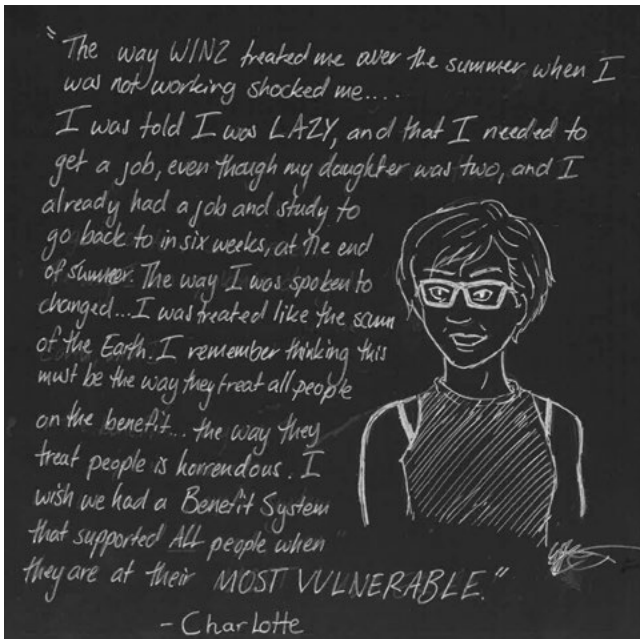 "The way WINZ treated me over the summer when I
was not working shocked me....
I was told I was LAZY, and that I needed to
get a job, even though my daughter was two, and I
already had a job and study to
go back to in six weeks, at the end
of summer. The way I was spoken to
changed... I was treated like the scum
of the Earth. I remember thinking this
must be the way they treat all people
on the benefit... the way they
treat people is horrendous. I
wish we had a Benefit System
that supported ALL people when
they are at their MOST VULNERABLE."
- Charlotte